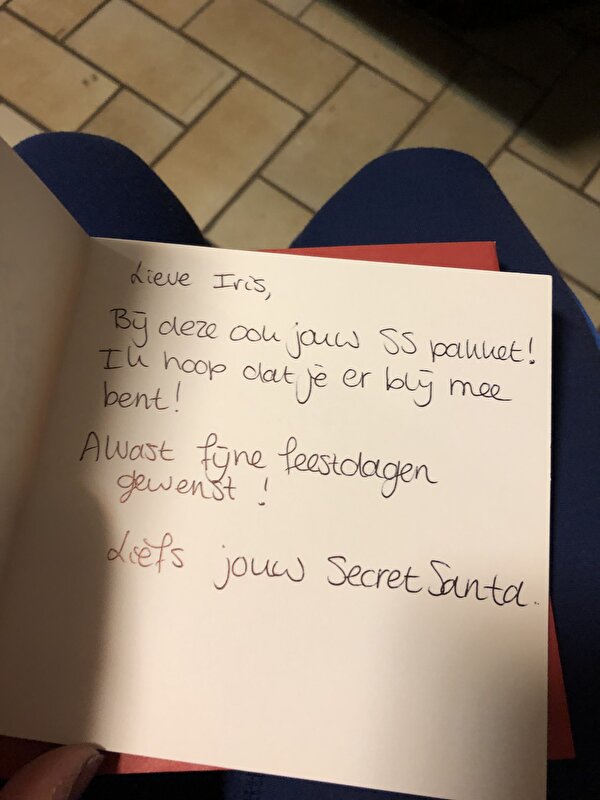 Lieve Iris,
Bij deze ook jouw SS pakket!
Ik hoop dat je er blij mee
bent!
Alvast fijne feestdagen
gewenst!
Liefs jouw Secret Santa.